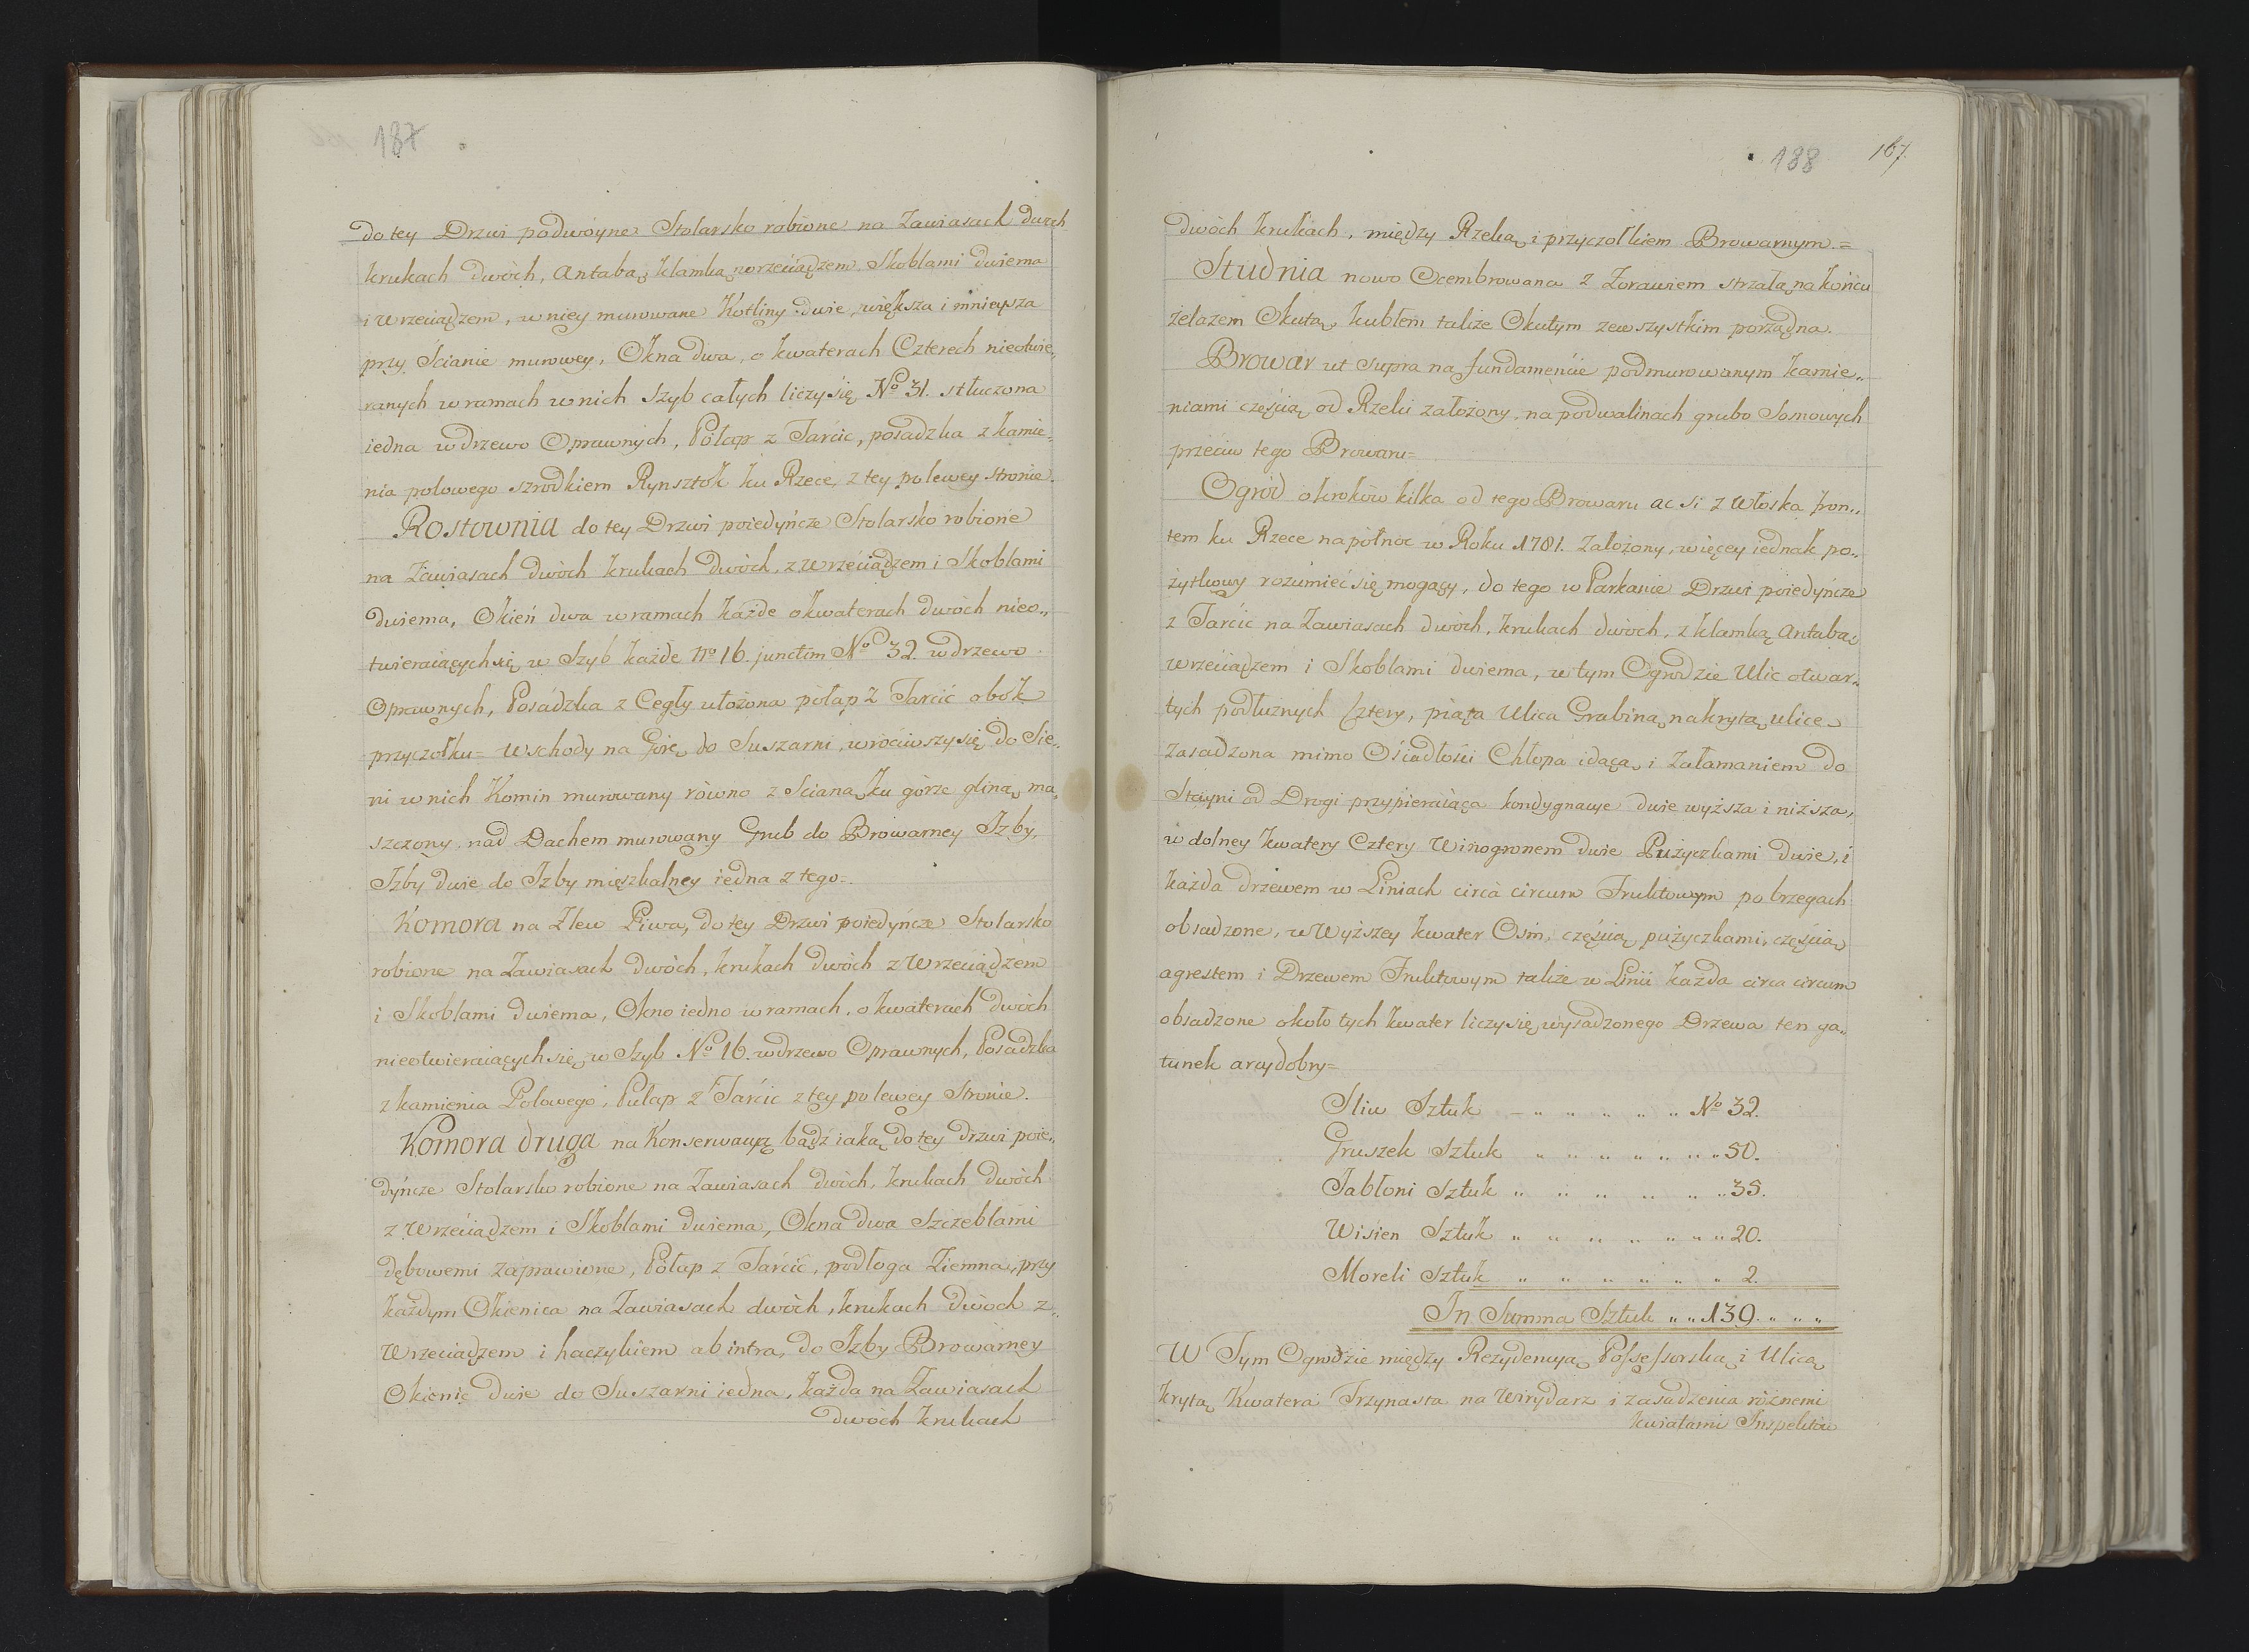 187
do tey Drzwi podwoyne Stolarsko robione na Zawiasach dwoch
krukach dwòch, Antabą, klamką, wrzeciądzem Skoblami dwiema
i wrzeciądzem, w niey murowane Kotliny dwie, większa i mnieysza
przy Ścianie murowey, Okna dwa, o kwaterach Czterech nieotwie„
ranych w ramach w nich Szyb całych liczy się No 31. stłuczona
iedna w drzewo Oprawnych, Półap z Tarcic, posadzka z kamie„
nia polowego szrodkiem Rynsztok ku Rzece, z tey po lewey stronie
Rostownia do tey Drzwi poiedyńcze Stolarsko robione
na Zawiasach dwòch krukach dwòch, z wrzeciądzem i Skoblami
dwiema, Okień dwa w ramach każde o kwaterach dwòch nieo„
twieraiących się w Szyb każde No 16. junctim No 32. w drzewo
Oprawnych, Posádzka z Cegły ułożona półap z Tarcic obok
przyczołku = Wschody na Górę do Suszarni, wróciwszy się do Sie„
ni w nich Komin murowany równo z Scianą, ku górze gliną ma„
szczony, nad Dachem murowany Grub do Browarney Izby,
Izby dwie do Izby mięszkalney iedna z tego =
Komora na Zlew Piwa, do tey Drzwi poiedyńcze Stolarsko
robione na Zawiasach dwòch, krukach dwòch z Wrzeciądzem
i Skoblami dwiema, Okno iedno w ramach, o kwaterach dwòch
nieotwieraiących się, w Szyb No 16. w drzewo Oprawnych, Posadzka
z kamienia Polowego, Pułap z Tarcic z tey po lewey Stronie.
Komora druga na Konserwacyą bądź iaką do tey drzwi poie„
dyńcze Stolarsko robione na Zawiasach dwòch, krukach dwòch
z Wrzeciądzem i Skoblami dwiema, Okna dwa Szczeblami
dębowemi zaprawione, Półap z Tarcic, podłoga Ziemna, przy
każdym Okienica na Zawiasach dwòch, krukach dwoch z„
Wrzeciądzem i haczykiem ab intra, do Izby Browarney
Okienic dwie do Suszarni iedna, każda na Zawiasach
dwòch krukach
188 167.
dwòch krukach, między Rzeką i przyczołkiem Browarnym. =
Studnia nowo Ocembrowana z Żorawiem strzałą na końcu
żelazem Okutą, kubłem także Okutym ze wszystkim porządna.
Browar ut supra na fundamencie podmurowanym kamie„
niami częścią od Rzeki założony, na podwalinach grubo Sosnowych
przeciw tego Browaru =
Ogród o kroków kilka od tego Browaru ac si z Włoska fron„
tem ku Rzece na północ w Roku 1781. założony, więcey iednak po„
żytkowy rozumieć się mogący, do tego w Parkanie Drzwi poiedyńcze
z Tarcic na Zawiasach dwòch, krukach dwòch, z klamką Antabą,
wrzeciądzem i Skoblami dwiema, w tym Ogrodzie Ulic otwar„
tych podłużnych cztery, piąta Ulica Grabiną nakrytą ulice
zasadzona mimo Osiadłości Chłopa idącą i Załamaniem do
Stayni od Drogi przypieraiąca kondygnacye dwie wyższa i niższa,
w dolney kwatery Cztery Winogronem dwie Pużyczkami dwie, i
każda drzewem w Liniach circa circum Fruktowym po brzegach
obsadzone, w Wyższey kwater Osm, częścią pużyczkami, częścią
agrestem i Drzewem Fruktowym także w Linii każda circa circum
obsadzone około tych kwater liczy się wysadzonego Drzewa ten ga„
tunek arcydobry =
Sliw Sztuk – „ „ „ „ „ No 32.
Gruszek Sztuk „ „ „ „ „ „ „ 50.
Jabłoni Sztuk „ „ „ „ „ „ 35.
Wisien Sztuk „ „ „ „ „ „ „ 20.
Moreli Sztuk „ „ „ „ „ „ 2.
In Summa Sztuk „ „ 139. „ „ „
W Tym Ogrodzie między Rezydencyą Possessorską i Ulicą
krytą Kwatera Trzynasta na Wirydarz i zasadzenia różnemi
kwiatami Inspektow